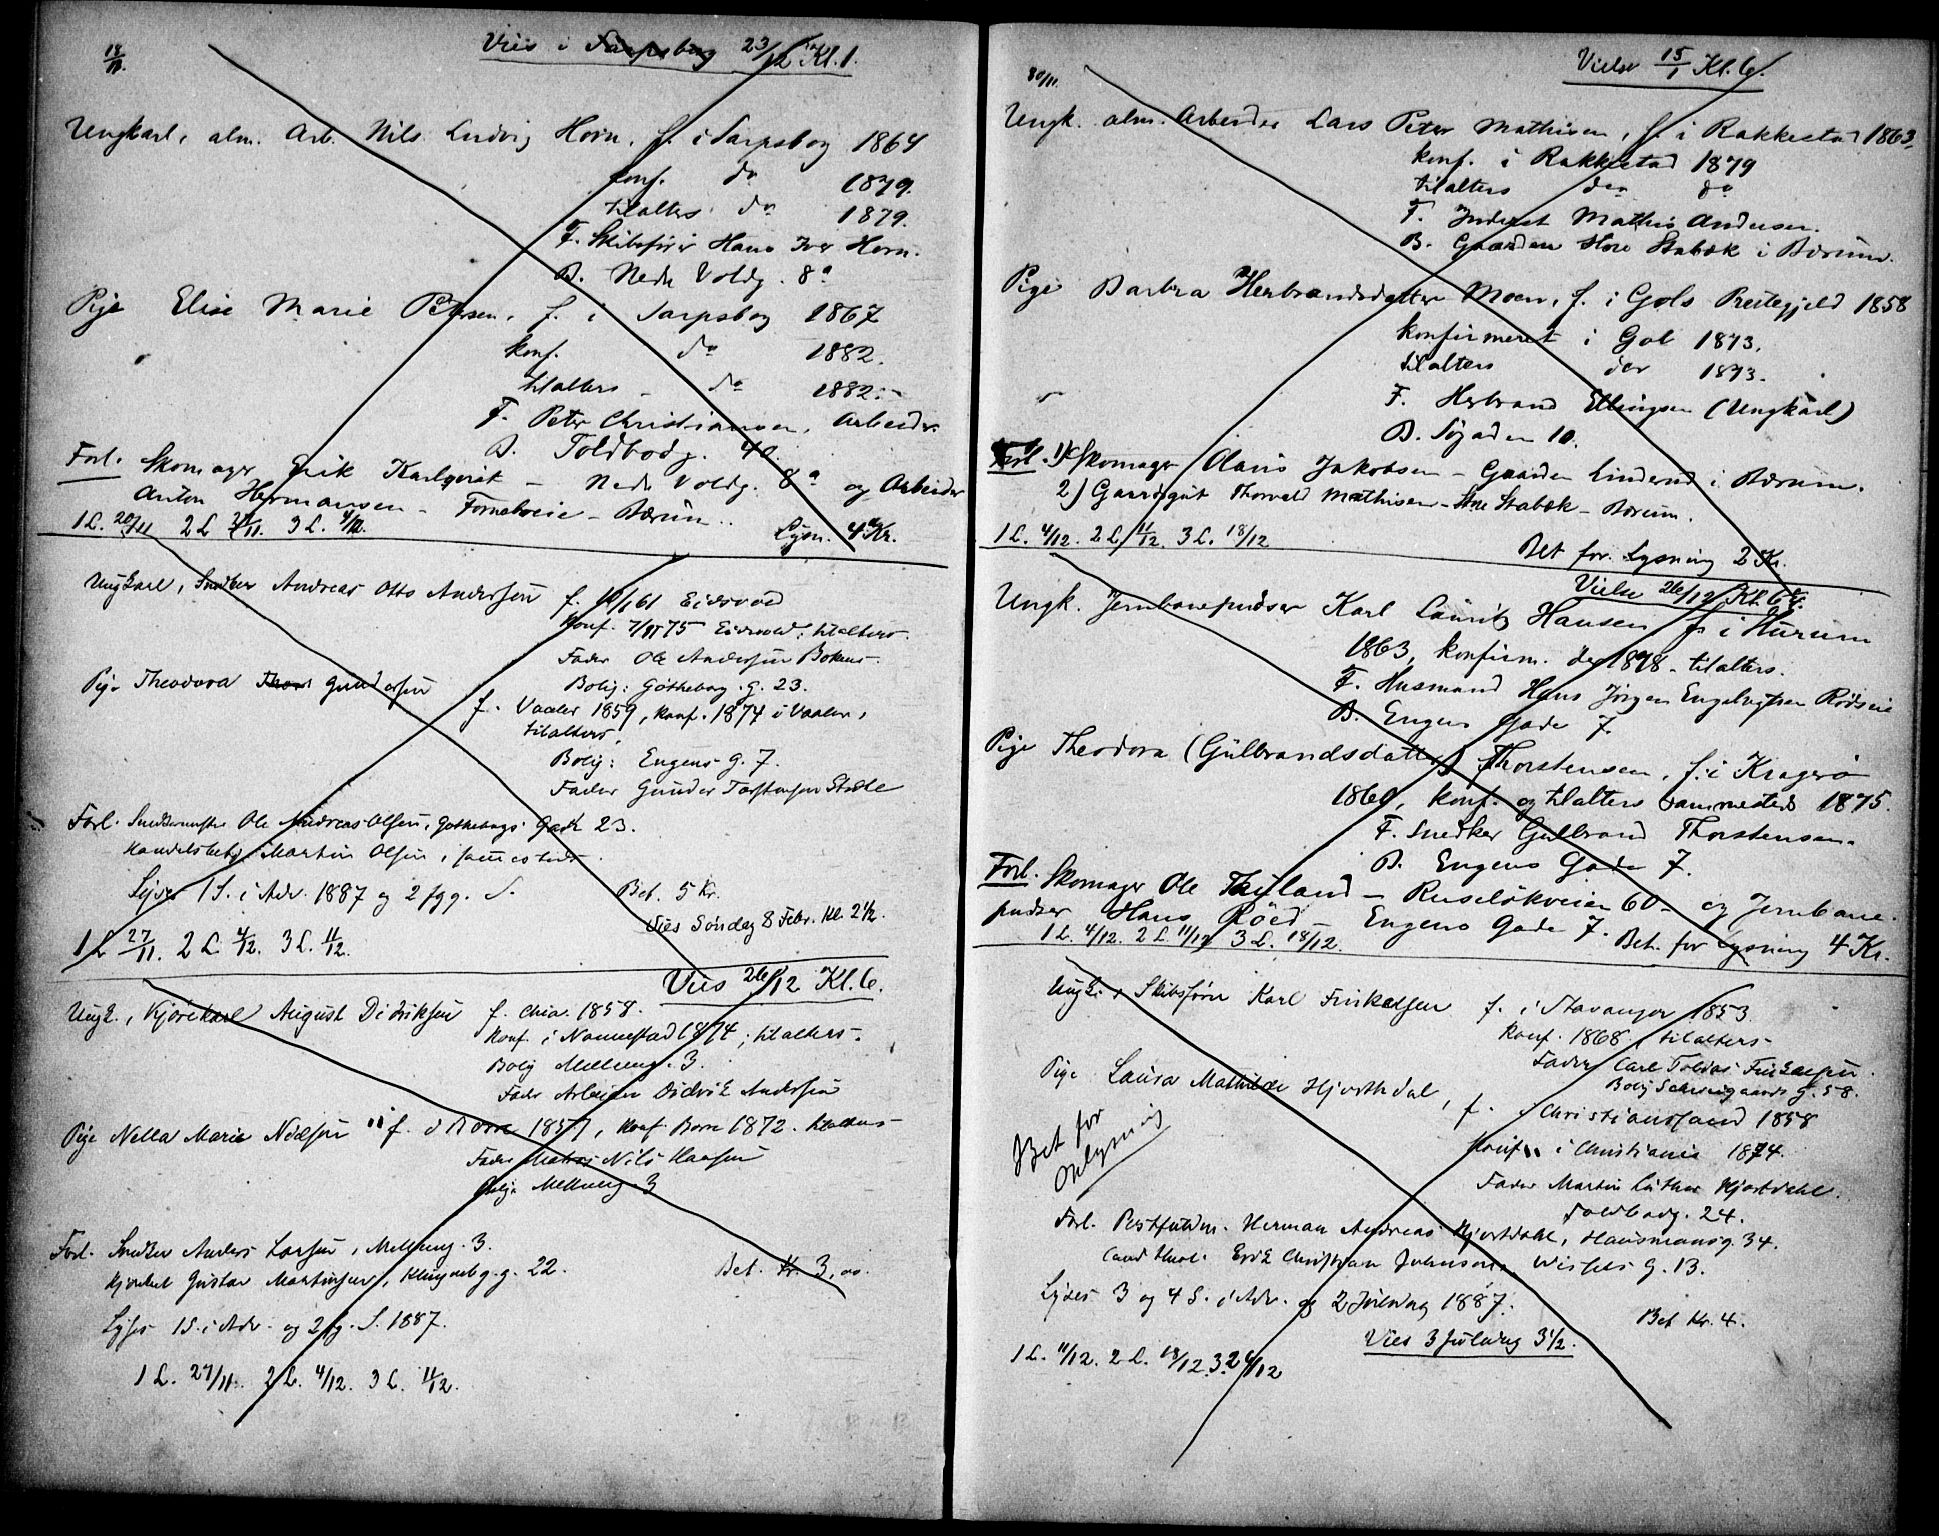 18/11. Vies i Sarpsborg 23/12 Kl. 1.
Ungkarl, alm. Arb. Nils Ludvig Horn, f. i Sarpsborg 1864
konf. do 1879.
tilalters do 1879.
F. Skibsfører Hans Iver Horn.
B. Nedr Voldg. 8a
Pige Elise Marie Petersen, f. i Sarpsborg 1867
konf. do 1882.
tilalters do 1882.
F. Peter Christiansen, Arbeider
B. Toldbodg. 40.
Forl. Skomager Erik Karlqvist - Nedr Voldg. 8a og Arbeider
Anton Hermansen - Fornebveie - Bærum.
1 L. 20/11 2 L 27/11. 3 L. 4/12. Lysn. 4 Kr.
Ungkarl, Snedker Andreas Otto Andersen f. 61 Eidsvold
konf. 75 Eidsvold, tilalters.
Fader Ole Andersen
Bolig: Gøtheborg. g. 23.
Pige Theodora Gundersen
f. Vaaler 1859, konf. 1874 i Vaaler,
tilalters,
Bolig: Engens g. 7.
Fader Gunder Torstensen
Forl. Snedkermester Ole Andreas Olsen, Gøtheborgs Gade 23.
Handelsbetj. Martin Olsen, samesteds.
Lyses 1 S. i Adv. 1887 og 2 flg. S. Bet. 5 Kr.
Vies Søndag 8 Febr. Kl. 2½.
1 L 27/11. 2 L. 4/12. 3 L. 11/12.
Vies 26/12 Kl. 6.
Ungk., Kjørekarl August Didriksen f. Chra. 1858.
konf. i Nannestad 1874; tilalters.
Bolig Mellemg. 3.
Fader Arbeider Didrik Andersen
Pige Nella Marie Nilsen f. i Borre 1857, konf. Borre 1872. tilalters
Fader Matros Nils Hansen
Bolig Mellemg. 3
Forl. Snedker Anders Larsen, Mellemg. 3.
Gustav Martinsen, 22. Bet. Kr. 3,00.
Lyses 1 S. i Adv. og 2 flg. S. 1887.
1 L. 27/11. 2 L. 4/12. 3 L. 11/12.
30/11. Vielse 15/1 Kl. 6.
Ungk. alm. Arbeider Lars Peter Mathisen, f. i Rakkestad 1863,
konf. i Rakkestad 1879
tilalters der do
F. Inderst Mathis Andersen.
B. Gaarden Store Stabæk i Bærum.
Pige Barbra Herbrandsdatter Moen, f. i Gols Præstegjeld 1858
konfirmeret i Gol 1873.
tilalters der 1873.
F. Herbrand Ellingsen (Ungkarl)
B. Søgaden 10.
Forl. 1) Skomager Olaus Jakobsen - Gaarden Linderud i Bærum.
2) Gaardsgut Thorvald Mathisen - Store Stabæk - Bærum.
1 L. 4/12. 2 L 11/12. 3 L. 18/12 Bet for Lysning 2 Kr.
Vielse 26/12 Kl. 6
Ungk. Jernbanepudser Karl Lauritz Hansen f. i Hurum
1863, konfirm. der 1878. tilalters.
F. Husmand Hans Jørgen Engebrigtsen Rødseie
B. Engens Gade 7.
Pige Theodora (Gulbrandsdatter) Thorstensen, f. i Kragerø
1860, konf. og tilalters sammesteds 1875.
F. Snedker Gulbrand Thorstensen.
B. Engens Gade 7.
Forl. Skomager Ole - Ruseløkveien 60 - og Jernbane-
pudser Hans Røed - Engens Gade 7.
1 L. 4/12. 2 L 11/12 3 L. 18/12. Bet. for Lysning 4 Kr.
Ungk., Skibsfører Karl f. i Stavanger 1853
konf. 1868, tilalters
Fader Carl Tobias
Bolig Schweigaards g. 58.
Pige Laura Mathilde Hjorthdal, f. i Christianssand 1858
konf. i Christiania 1874.
Fader Martin Luther Hjortdahl.
Toldbodg. 24.
Bet for
Oplysning
Forl. Postfuldm. Herman Andreas Hjortdahl, Hausmansg. 34.
Cand theol. Erik Christian Johnson, Wessels g. 13.
Lyses 3 og 4 S. i Adv. og 2 Juledag 1887. Bet Kr. 4.
Vies 3 Juledag 3½.
1 L. 11/12. 2 L. 18/12. 3. 26/12